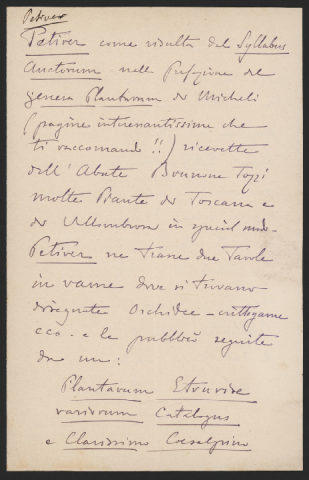 Petiver
Petiver come risulta dal Syllabus
Auctorum nella Prefazione del
genera Plantarum di Micheli
(pagine interessantissime che
ti raccomando !!) ricevette
dall' Abate Brunone Tozzi
molte Piante di Toscana e
di Vallombrosa in special modo
Petiver ne trasse due Tavole
in rame dove si trovano
disegnate Orchidee - crittogame
ecc. e le pubblicò seguite
da un:
Plantarum Etruriae
rariorum Catalogus
e Clarissimo Caesalpino